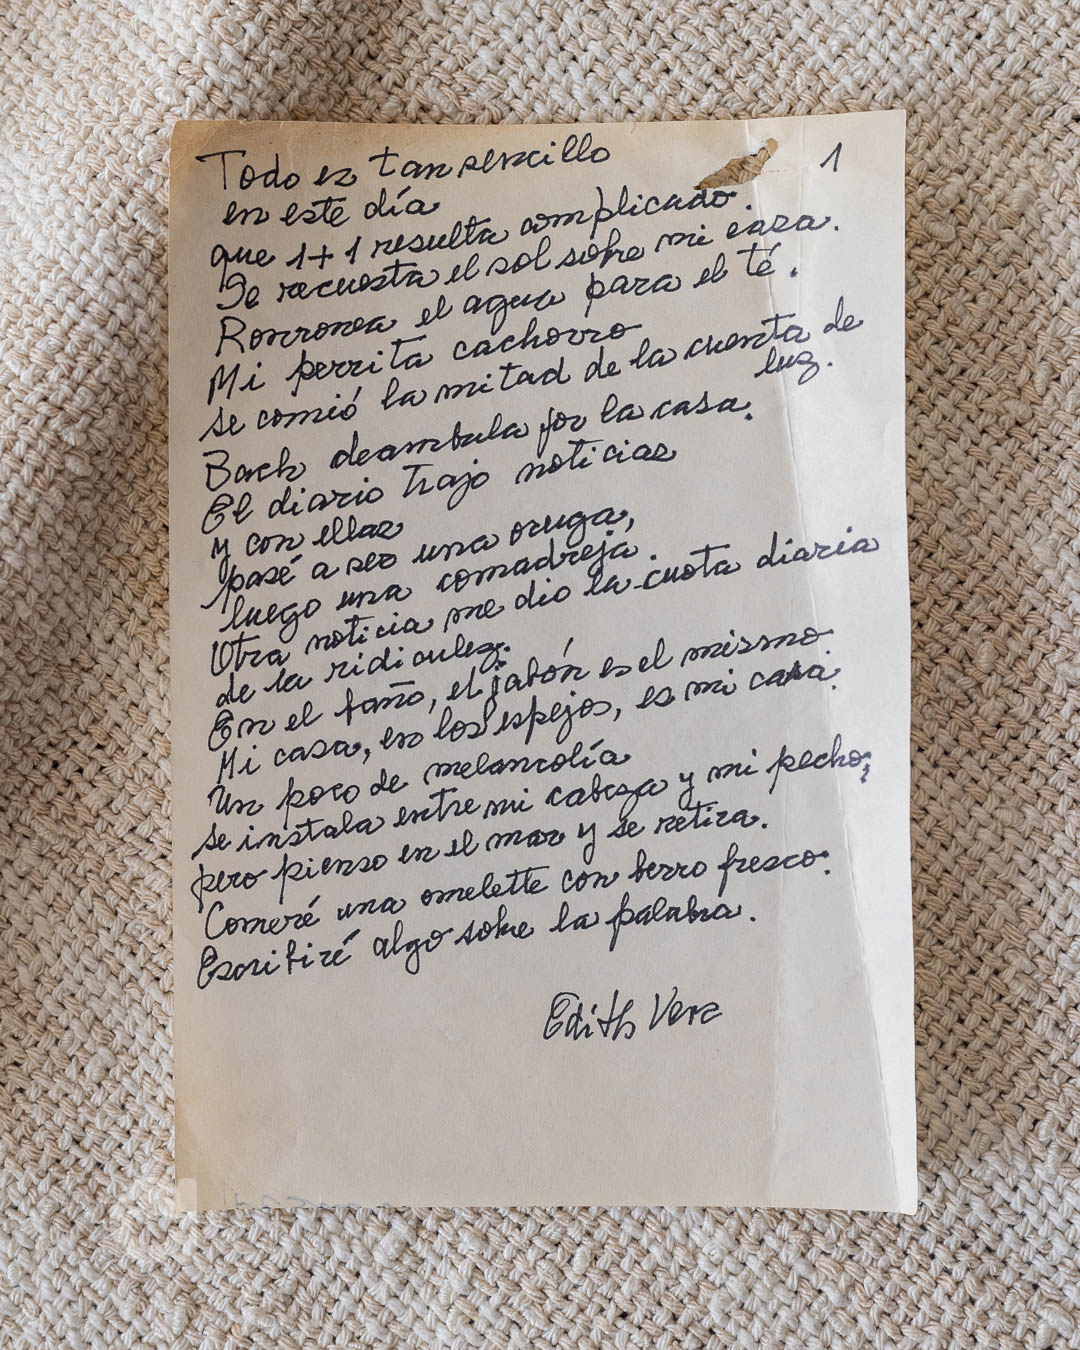 1
Todo es tan sencillo
en este día
que 1+1 resulta complicado.
Se recuesta el sol sobre mi casa.
Ronronea el agua para el té.
Mi perrita cachorro
se comió la mitad de la cuenta de
luz.
Bach deambula por la casa.
El diario trajo noticias
y con ellas
pasé a ser una oruga,
luego una comadreja.
Otra noticia me dio la cuota diaria
de la ridiculez.
En el baño, el jabón es el mismo.
Mi casa, en los espejos, es mi casa.
Un poco de melancolía
se instala entre mi cabeza y mi pecho;
pero pienso en el mar y se retira.
Comeré una omelette con berro fresco.
Escribiré algo sobre la palabra.
Edith Vera